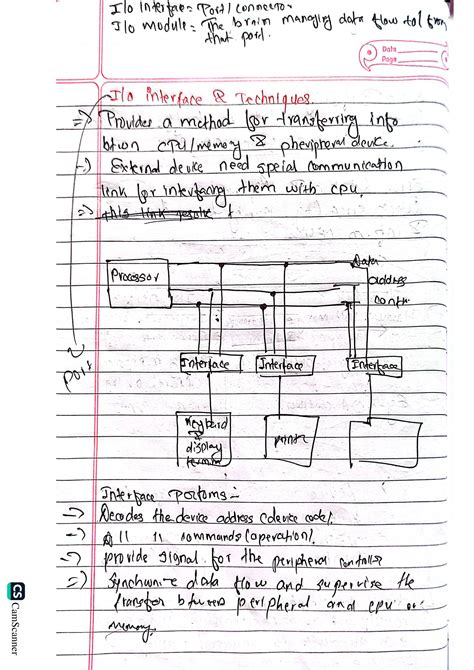 I/o Interface = Port/connector
I/o Module = The brain managing data flow to/from
that port.
Date
Page
I/o interface & Techniques.
=> Provides a method for transferring info
btwn CPU/memory & pheripheral device.
-) External device need speial communication
link for interfacing them with cpu.
=> this link
Data
Processor
address
contr
port
Interface
Interface
Interface
Keyboard
&
display
termin
printer
Interface Performs -
-) Decodes the device address (device code).
-) " " commands (operation).
-) provide signal for the peripheral controller
=) Synchronize data flow and supervise the
transfer btween peripheral and cpu or
memory.
CS CamScanner